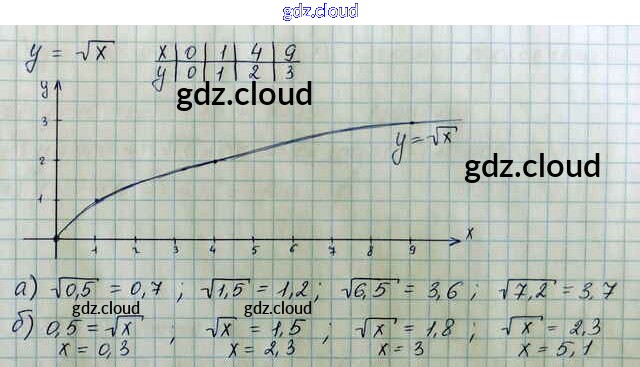 gdz.cloud
y = √x
x | 0 | 1 | 4 | 9
y | 0 | 1 | 2 | 3
gdz.cloud
y
3
2
1
y = √x
gdz.cloud
x
1 2 3 4 5 6 7 8 9
а) √0,5 = 0,7 ; √1,5 = 1,2 ; √6,5 = 3,6 ; √7,2 = 3,7
gdz.cloud gdz.cloud
б) 0,5 = √x ; √x = 1,5 ; √x = 1,8 ; √x = 2,3
x = 0,3 x = 2,3 x = 3 x = 5,1
gdz.cloud gdz.cloud